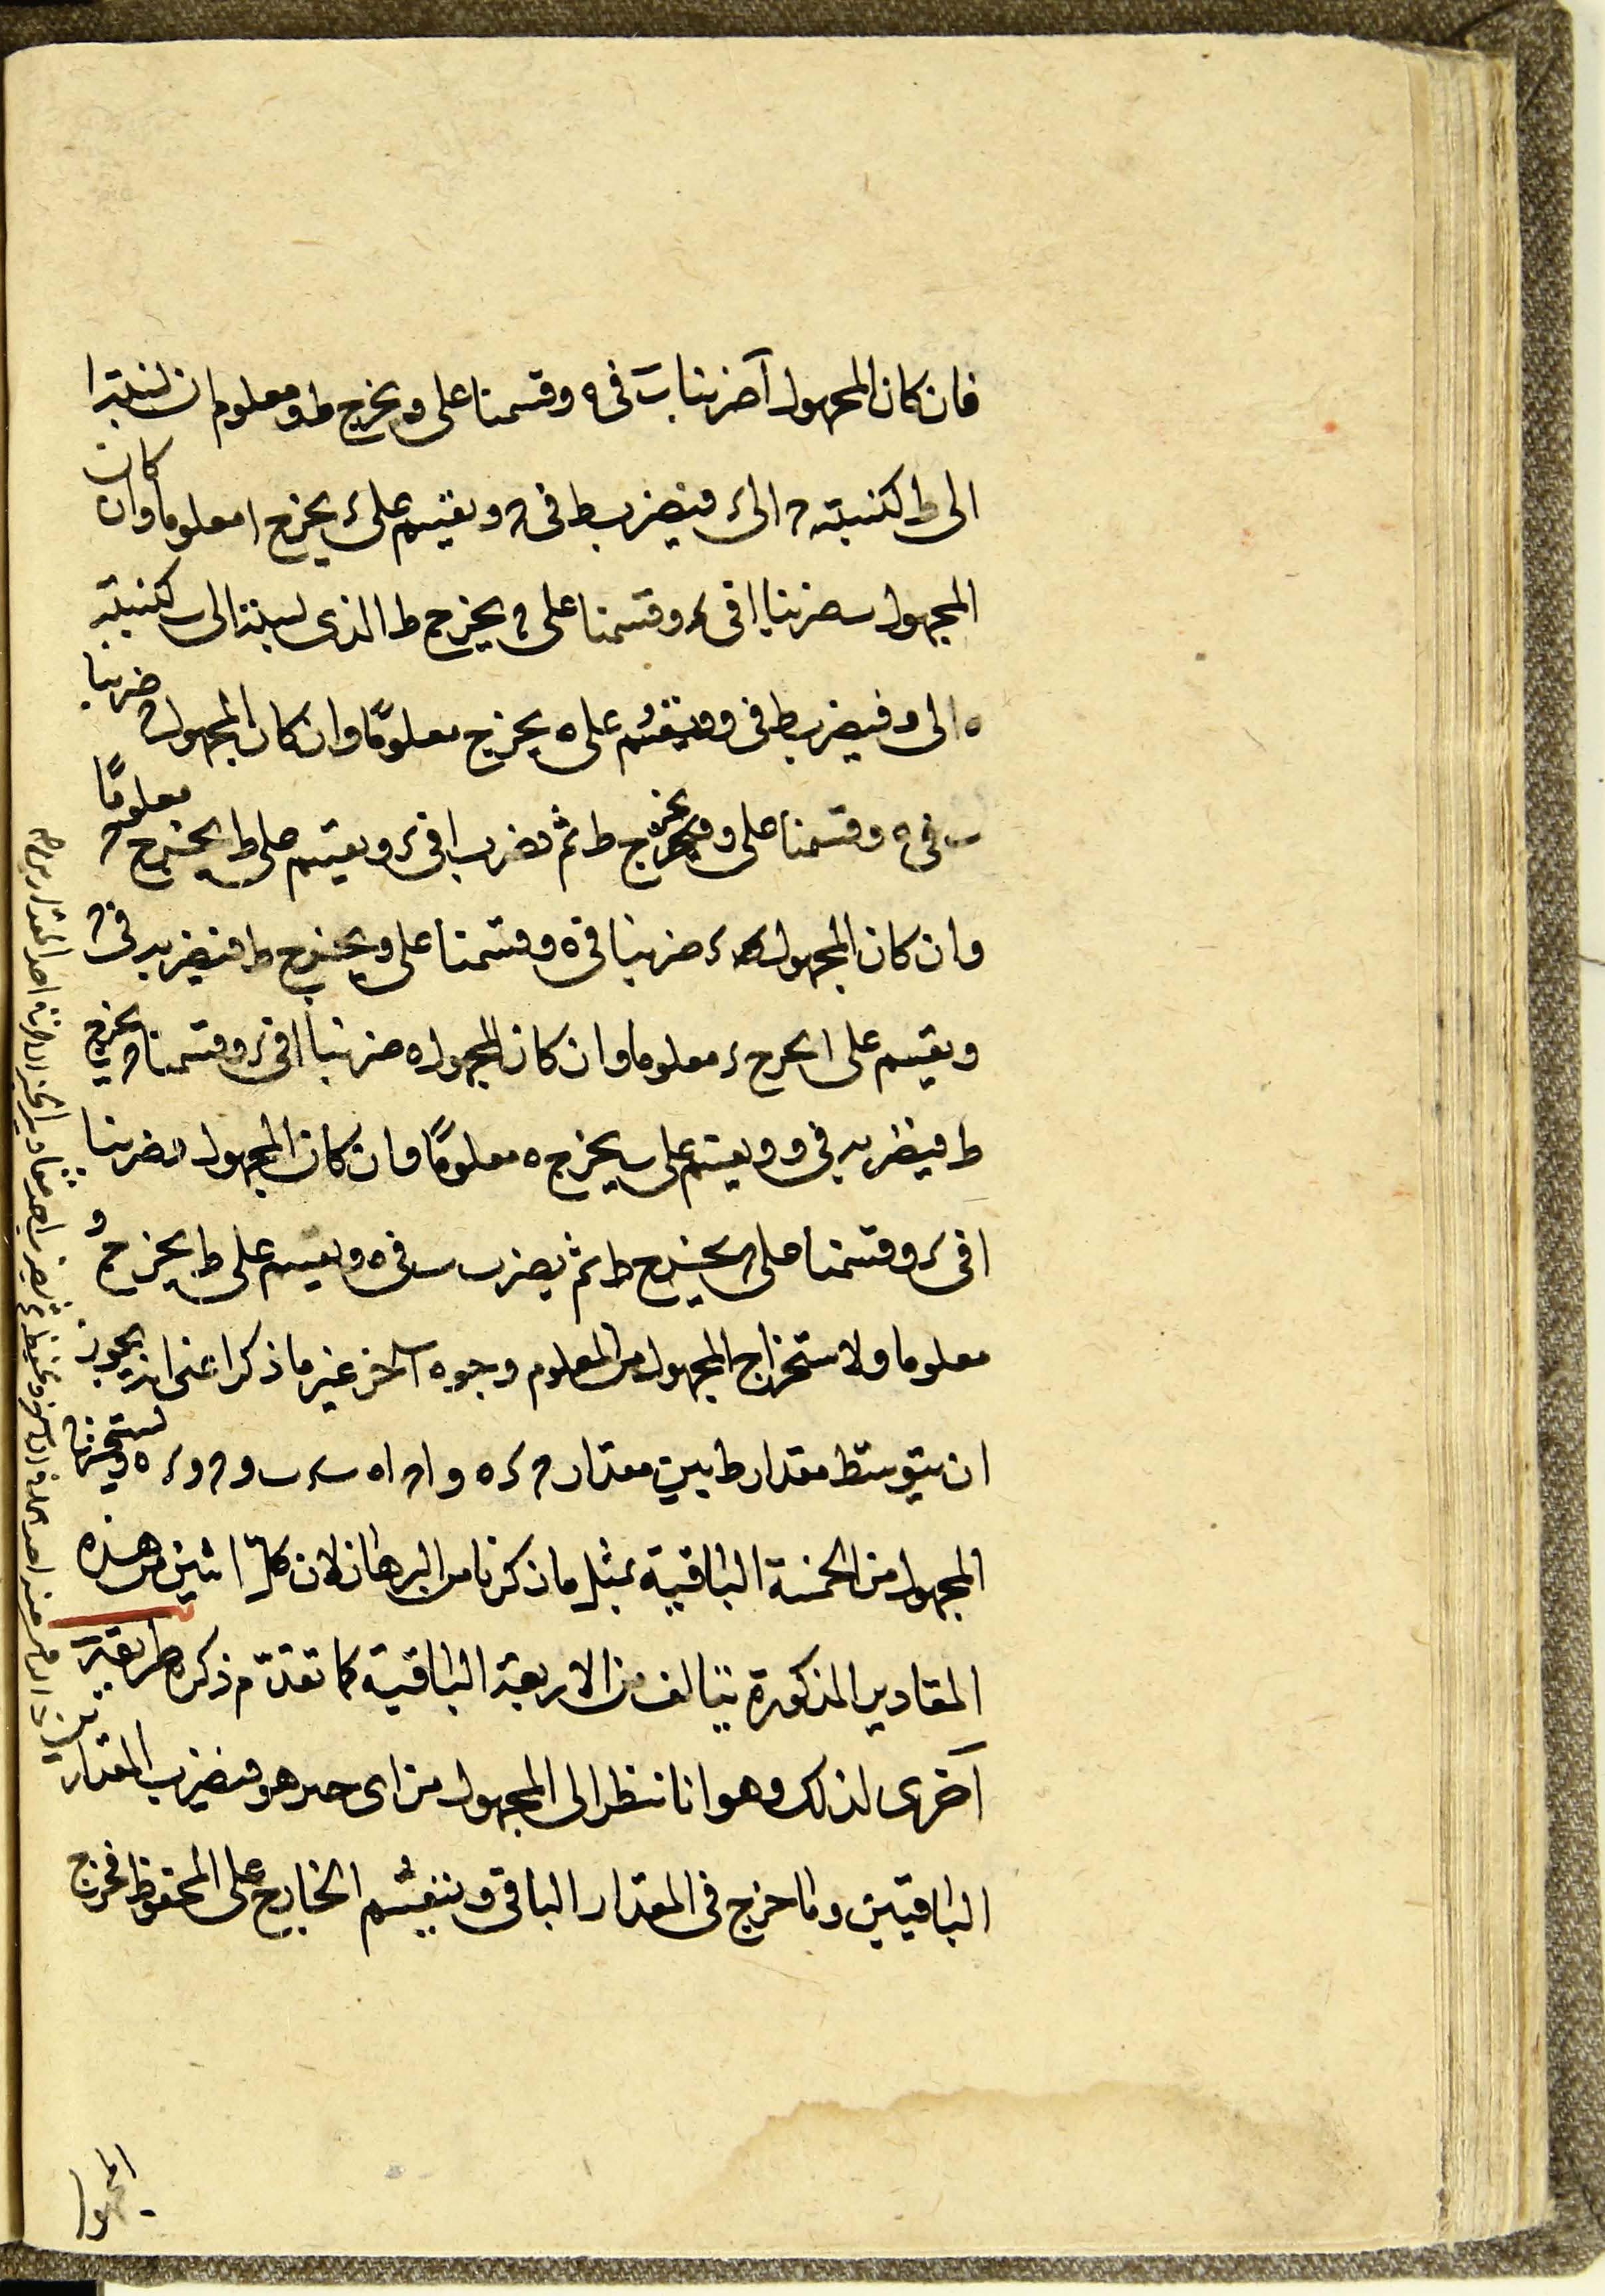 فان كان المجهول آ ضربنا ب فى ه وقسمنا على و يخرج ط ومعلوم ان نسبة ا
الى ط كنسبة ح الى د فنضرب ط فى ح ونقسم على د يخرج ا معلوما وان كان
المجهول ب ضربنا ا فى د وقسمنا على ح يخرج ط الذى نسبته الى ب كنسبة
ه الى و فنضرب ط فى و ونقسم على ه يخرج معلومًا وان كان المجهول ح ضربنا
ب فى ه وقسمنا على و يخرج ط ثم نضرب ا فى د ونقسم على ط يخرج ح معلومًا
وان كان المجهول د ضربنا فى ه وقسمنا على و يخرج ط فنضربه فى ح
ونقسم على ا يخرج د معلوما وان كان المجهول ه ضربنا ا فى د وقسمنا ح يخرج
ط فنضربه فى و ونقسم على ب يخرج ه معلومًا وان كان المجهول و ضربنا
ا فى د وقسمنا على ح يخرج ط ثم نضرب ب فى ه ونقسم على ط يخرج و
معلوما ولاستخراج المجهول من المعلوم وجوه آخر غير ما ذكر اعنى انه يجوز
ان يتوسط مقدار ط بين مقدار ح د ه و ا ح ا ه ب د ب و ح و د ه ويستخرج
المجهول من الخمسة الباقية بمثل ما ذكرنا من البرهان لان كل اثنين من هذه
المقادير المذكورة يتالف من الاربعة الباقية كما تقدم ذكره طريقة
آخرى لذلك وهو انا ننظر الى المجهول من اى حد هو فنضرب المقدارين
الباقيتين وما خرج فى المقدار الباقى ونقسم الخارج على المحفوظ فخرج
المجهول